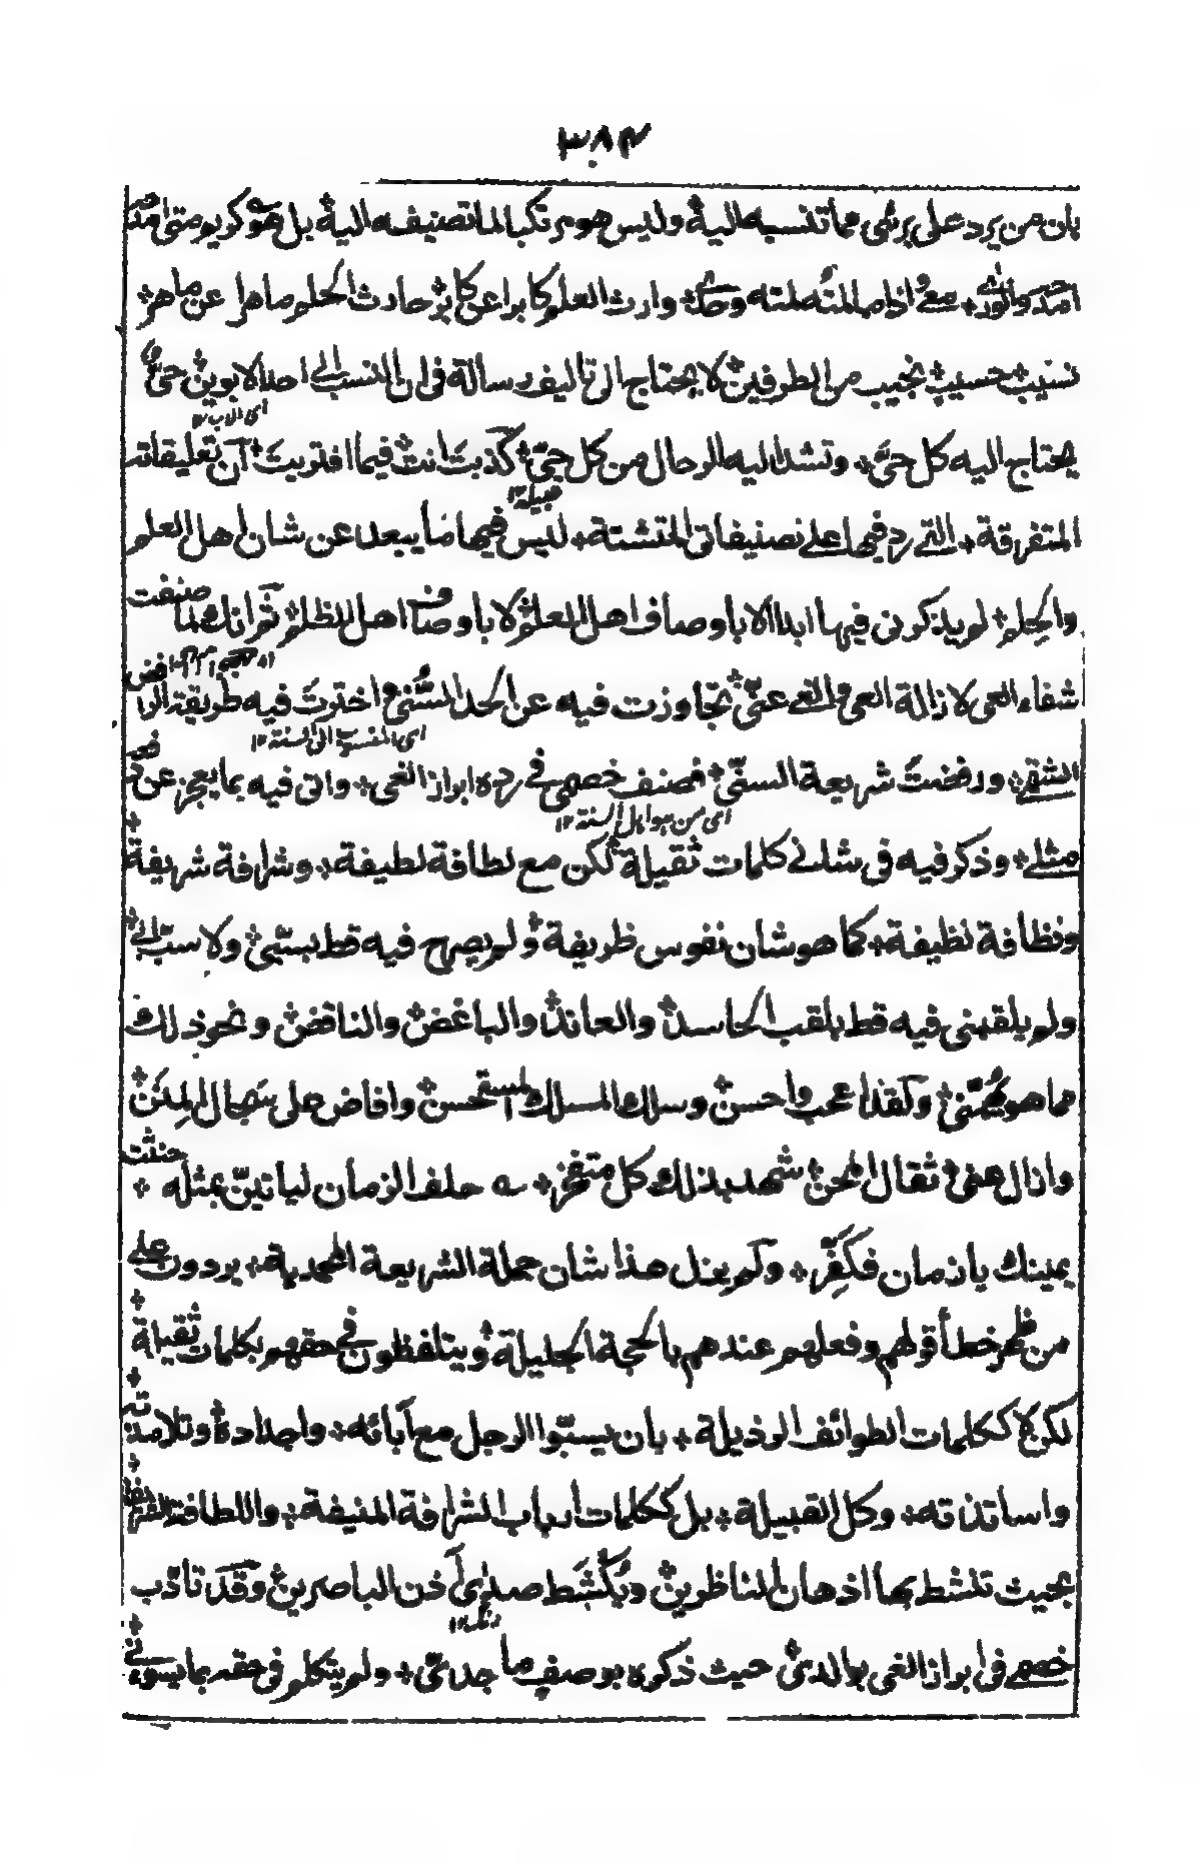 ٣٨٤
بان من يرد على برئى مما تنسبه اليه وليس هو مرتكبا لما تصنيفه اليه بل هو كريم متى امدحه
امدحه والورى معى اذا ما لمته لمته وحدى وارث العلم كابرا عن كابر حادث الحلم ماهرا عن ماهر
نسيب حسيب نجيب من الطرفين لا يحتاج الى تاليف رسالة فى ان النسب الى احد الابوين حتى
اى الاب ١٢
يحتاج اليه كل حى وتشد اليه الرحال من كل حى كذبت انت فيما افتريت ان تعليقاته
قبيلة ١٢
المتفرقة التى رد فيها على تصنيفاتى المتشتتة ليس فيها ما يبعد عن شان اهل العلم
والحلم لم يذكرنى فيها ابدا الا باوصاف اهل العلم لا باوصاف اهل الظلم ثم انك لما صنفت
شفاء العى لازالة العى والغى عنى تجاوزت فيه عن الحد السنى واخترت فيه طريقة الرافض
اى المنسوب الى السنة ١٢
الشقى ورفضت شريعة السنى فصنف خصمى فى رده ابراز الغى واتى فيه بما يعجز عن دفعه
اى من هو اهل السنة ١٢
مثلى وذكر فيه فى شانى كلمات ثقيلة لكن مع لطافة لطيفة وشرافة شريفة
ونظافة نظيفة كما هو شان نفوس ظريفة ولم يصرح فيه قط بسبى ولا سب ابى
ولم يلقبنى فيه قط بلقب الحاسد والعاند والباغض والناقض ونحو ذلك
مما هو يهمنى ولقد اعجب واحسن وسلك المسلك المستحسن وافاض على سجال المنن
وازال عنى ثقال المحن شهد بذلك كل متفخر ؎ حلف الزمان لياتين بمثله حنثت
يمينك يا زمان فكفر ولم يزل هذا شان حملة الشريعة المحمدية يردون على
من ظهر خطأ قولهم وفعلهم عندهم بالحجة الجليلة ويتلفظون فى حقهم بكلمات ثقيلة
لكن لا ككلمات الطوائف الرذيلة بان يسبوا الرجل مع آبائه واجداده وتلامذته
واساتذته وكل القبيلة بل ككلمات ارباب الشرافة المنيفة واللطافة الشريفة
بحيث تنشط بها اذهان المناظرين ويكشط صدى آذان الباصرين وقد تأدب
زنگ ١٢
خصمى فى ابراز الغى بوالدى حيث ذكره بوصف ما جدتى ولم يتكلم فى حقه بما يسوءنى